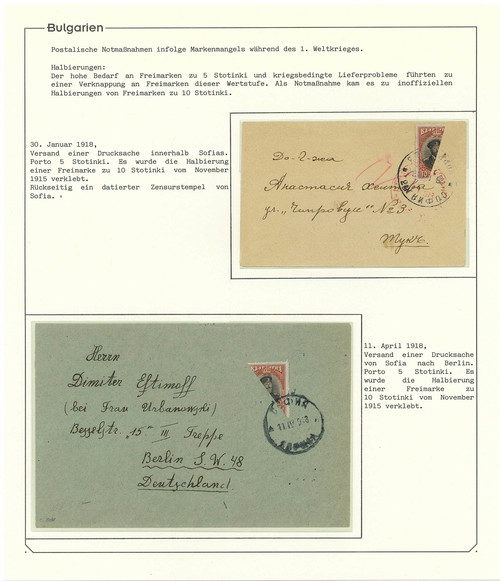 Bulgarien
Postalische Notmaßnahmen infolge Markenmangels während des 1. Weltkrieges.
Halbierungen:
Der hohe Bedarf an Freimarken zu 5 Stotinki und kriegsbedingte Lieferprobleme führten zu
einer Verknappung an Freimarken dieser Wertstufe. Als Notmaßnahme kam es zu inoffiziellen
Halbierungen von Freimarken zu 10 Stotinki.
30. Januar 1918,
Versand einer Drucksache innerhalb Sofias.
Porto 5 Stotinki. Es wurde die Halbierung
einer Freimarke zu 10 Stotinki vom November
1915 verklebt.
Rückseitig ein datierter Zensurstempel von
Sofia.
До Г-жа
Анастасия
ул. „Чипровци" №3
Тукъ.
11. April 1918,
Versand einer Drucksache
von Sofia nach Berlin.
Porto 5 Stotinki. Es
wurde die Halbierung
einer Freimarke zu
10 Stotinki vom November
1915 verklebt.
Herrn
Dimiter Eftimoff
(bei Frau Urbanowski)
Besselstr. 15 III Treppe
Berlin S.W. 48
Deutschland.
СОФИЯ
11 IV